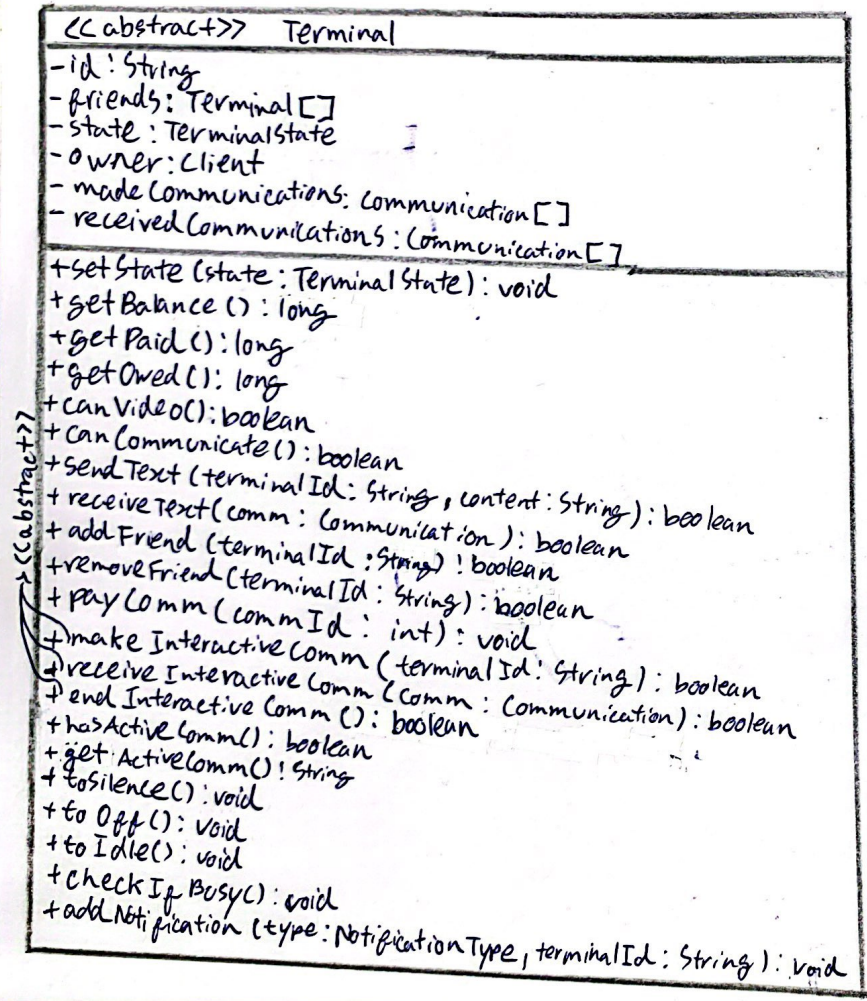 <<abstract>> Terminal
- id : String
- friends: Terminal[]
- state : TerminalState
- owner : Client
- madeCommunications: Communication[]
- receivedCommunications : Communication[]
+ setState (state : TerminalState) : void
+ getBalance () : long
+ getPaid () : long
+ getOwed () : long
+ canVideo() : boolean
+ canCommunicate () : boolean
+ sendText (terminalId : String, content : String) : boolean
+ receiveText (comm : Communication) : boolean
+ addFriend (terminalId : String) : boolean
+ removeFriend (terminalId : String) : boolean
+ payComm (commId : int) : void
<<abstract>>
+ makeInteractiveComm (terminalId : String) : boolean
+ receiveInteractiveComm (comm : Communication) : boolean
+ endInteractiveComm () : boolean
+ hasActiveComm() : boolean
+ getActiveComm() : String
+ toSilence() : void
+ toOff () : void
+ toIdle() : void
+ checkIfBusy() : void
+ addNotification (type : NotificationType, terminalId : String) : void